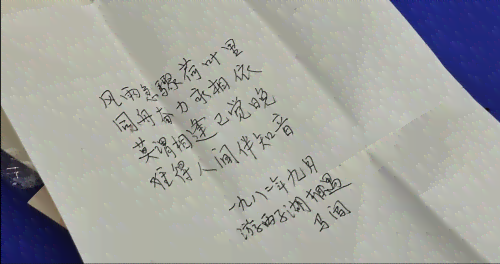 风雨急骤荷叶里
同舟奋力求相依
莫谓相逢已觉晚
难得人间伴知音
一九八二年九月
游西子湖